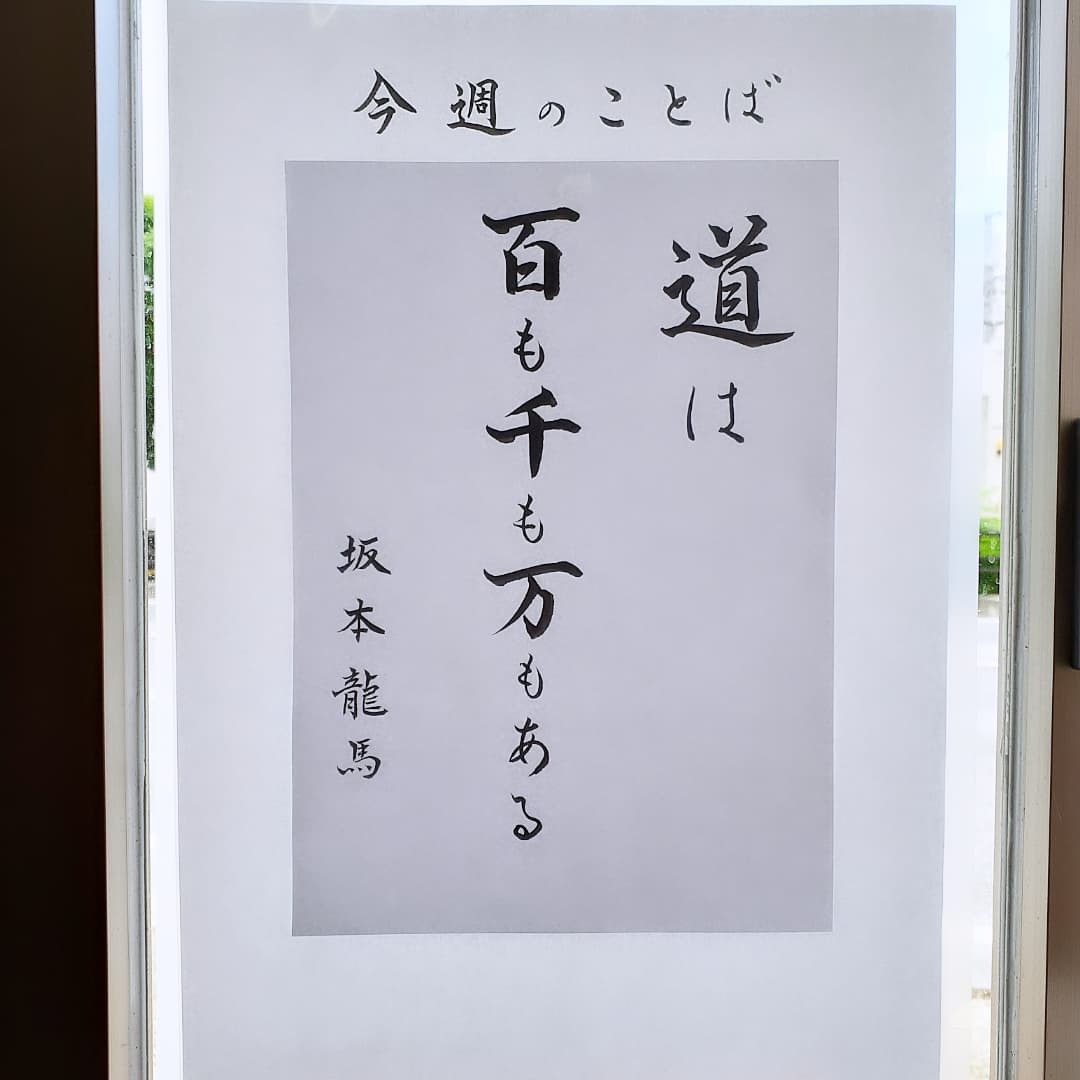 今週のことば
道は
百も千も万もある
坂本龍馬